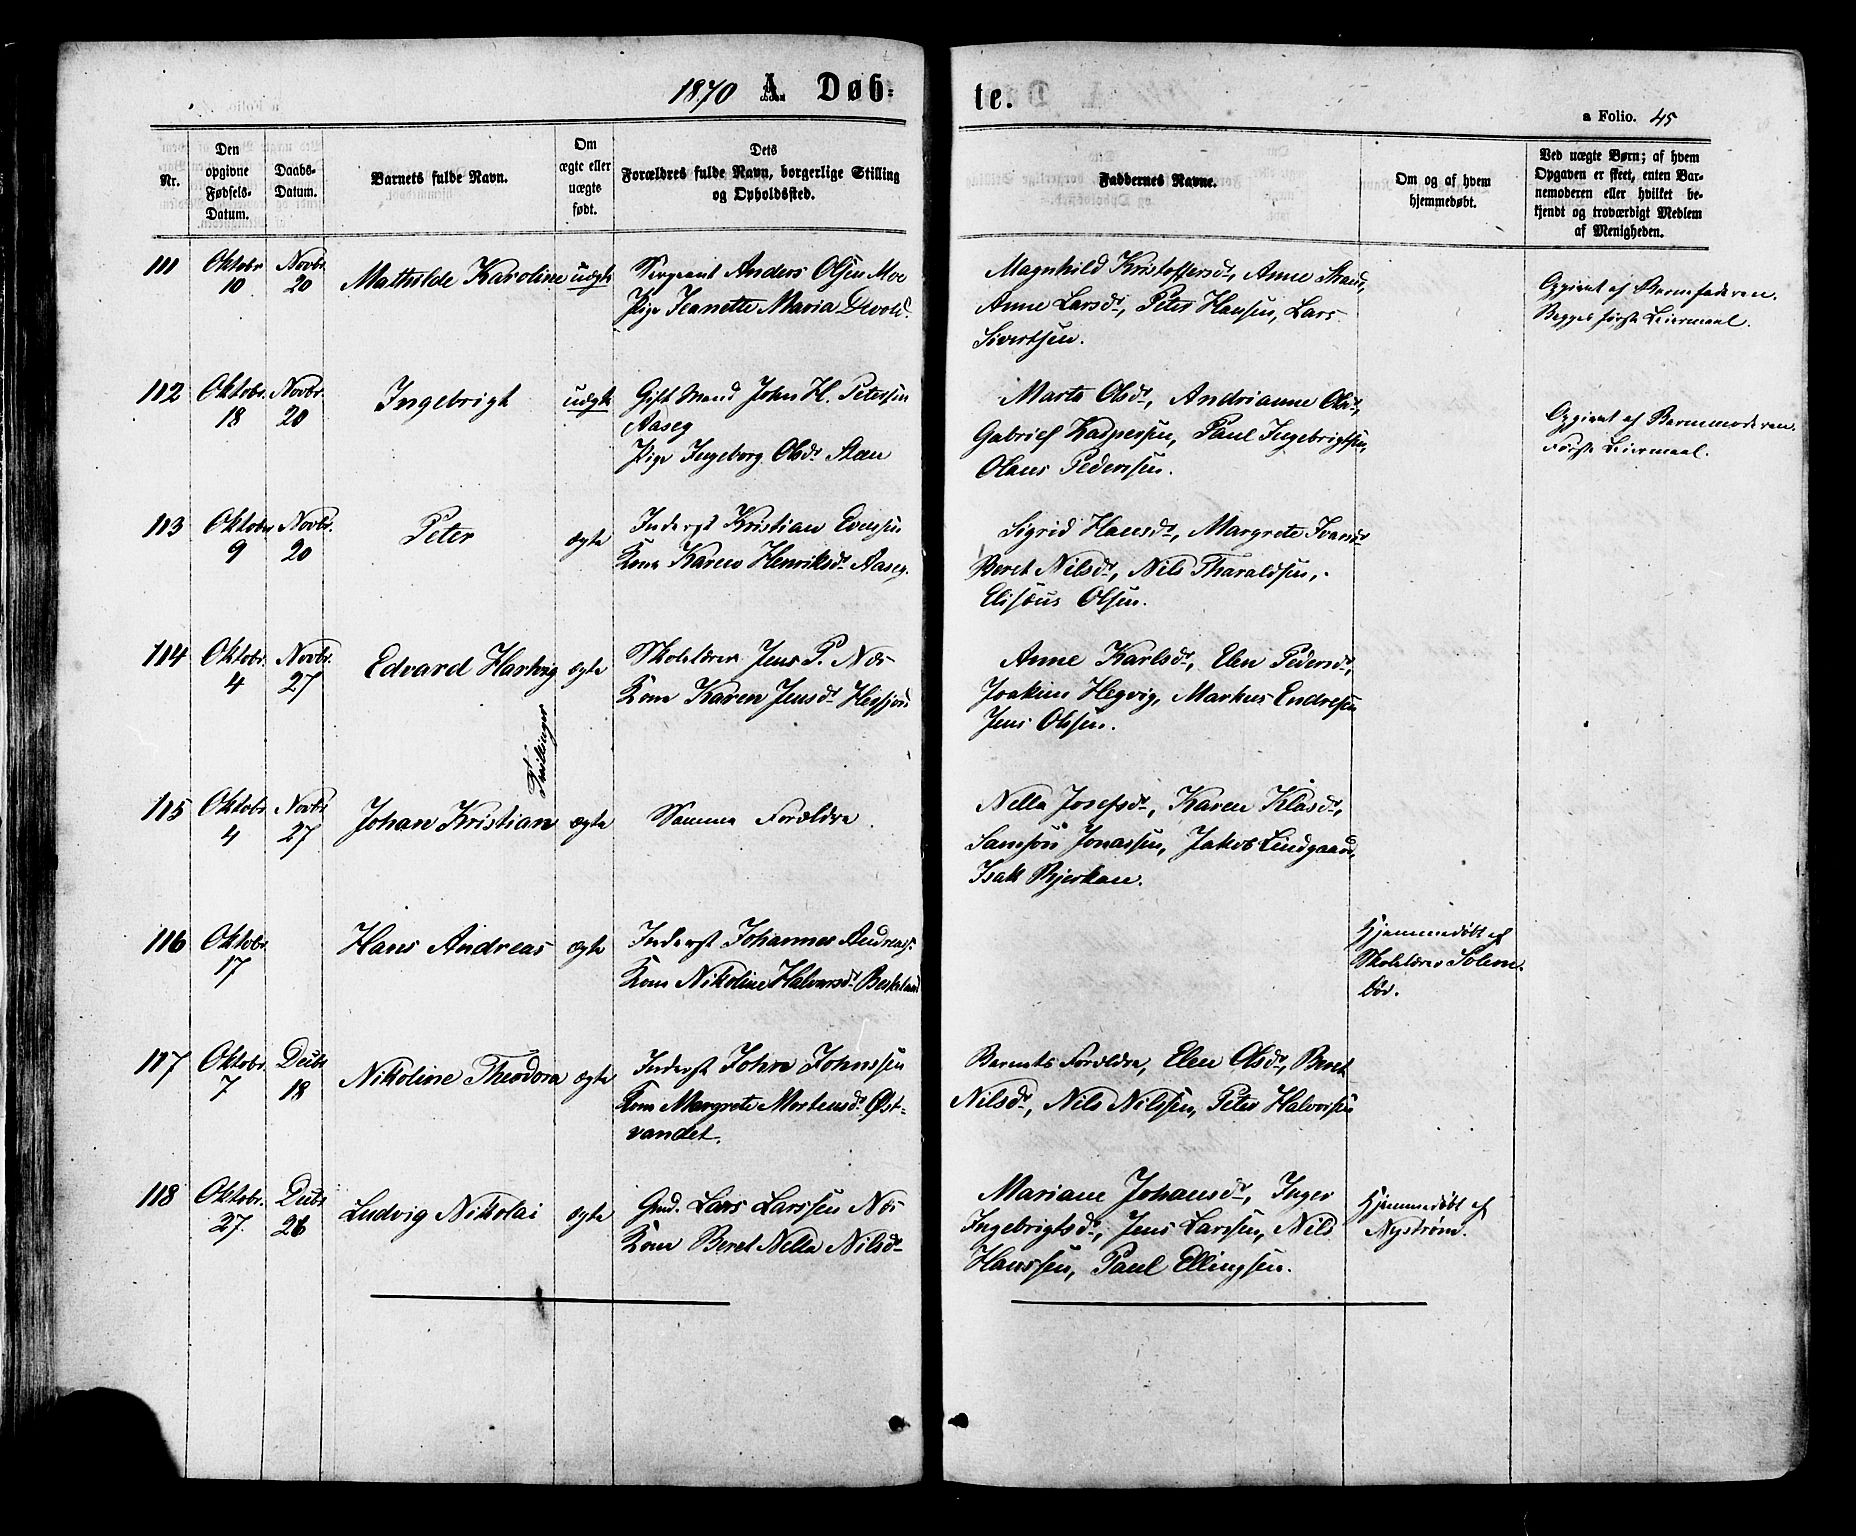 1870 A. Døb-
te.
a Folio. 45
Nr.
Den
opgivne
Fødsels-
Datum.
Daabs-
Datum.
Barnets fulde Navn.
Om
ægte eller
uægte
født.
Dets
Forældres fulde Navn, borgerlige Stilling
og Opholdssted.
Faddernes Navne.
Om og af hvem
hjemmedøbt.
Ved uægte Børn; af hvem
Opgaven er skeet, enten Bar-
nemoderen eller hvilket be-
kjendt og troværdigt Medlem
af Menigheden.
111
Oktobr
10
Novbr.
20
Mathilde Karoline
uægte
Sergeant Anders Olsen Moe
Pige Jeanette Maria Devold.
Magnhild Kristoffersdr, Anne Strand,
Anne Larsdr, Peter Hansen, Lars
Sivertsen.
Opgivet af Barnefaderen.
Begges første Leiermaal.
112
Oktobr.
18
Novbr.
20
Ingebrigt
uægte
Gift Mand John H. Petersen
Aaseg
Pige Ingeborg Olsdr Steen
Marte Olsdr, Andrianne Olsdr,
Gabriel Kaspersen, Paul Ingebrigtsen,
Olaus Pedersen.
Opgivet af Barnemoderen.
Første Leiermaal.
113
Oktobr
9
Novbr.
20
Peter
ægte
Inderst Kristian Evensen
Kone Karen Henriksdr Aaseg.
Sigrid Hansdr, Margrete Ivarsdr
Beret Nilsdr, Nils Tharaldsen,
Elisæus Olsen.
114
Oktobr.
4
Novbr.
27
Edvard Hartvig
ægte
Skolelærer Jens P. Næs
Kone Karen Jensdr Hessjøen
Anne Karlsdr, Elen Pedersdr,
Joakim Hegvig, Markus Endresen
Jens Olsen.
Tvillinger
115
Oktobr
4
Novbr
27
Johan Kristian
ægte
Samme Forældre.
Nella Josefsdr, Karen Klasdr,
Samson Jonassen, Jakob Lindgaard,
Isak Bjerkan.
116
Oktobr.
17
Hans Andreas
ægte
Inderst Johannes Andreass.
Kone Nikoline Halvorsdr
Hjemmedøbt af
Skolelærer Solem.
død.
117
Oktobr.
7
Decbr
18
Nikoline Theodora
ægte
Inderst Johan Johnssen
Kone Margrete Mortensdr Øst-
vandet.
Barnets Forældre, Elen Olsdr, Beret
Nilsdr, Nils Nilssen, Peter Halvorsen
118
Oktobr.
27.
Decbr
26
Ludvig Nikolai
ægte
Gmd. Lars Larssen Næs
Kone Beret Nella Nilsdr
Mariane Johansdr, Inger
Ingebrigtsdr, Jens Larssen, Nils
Hanssen, Paul Ellingsen.
Hjemmedøbt af
Nystrøm.